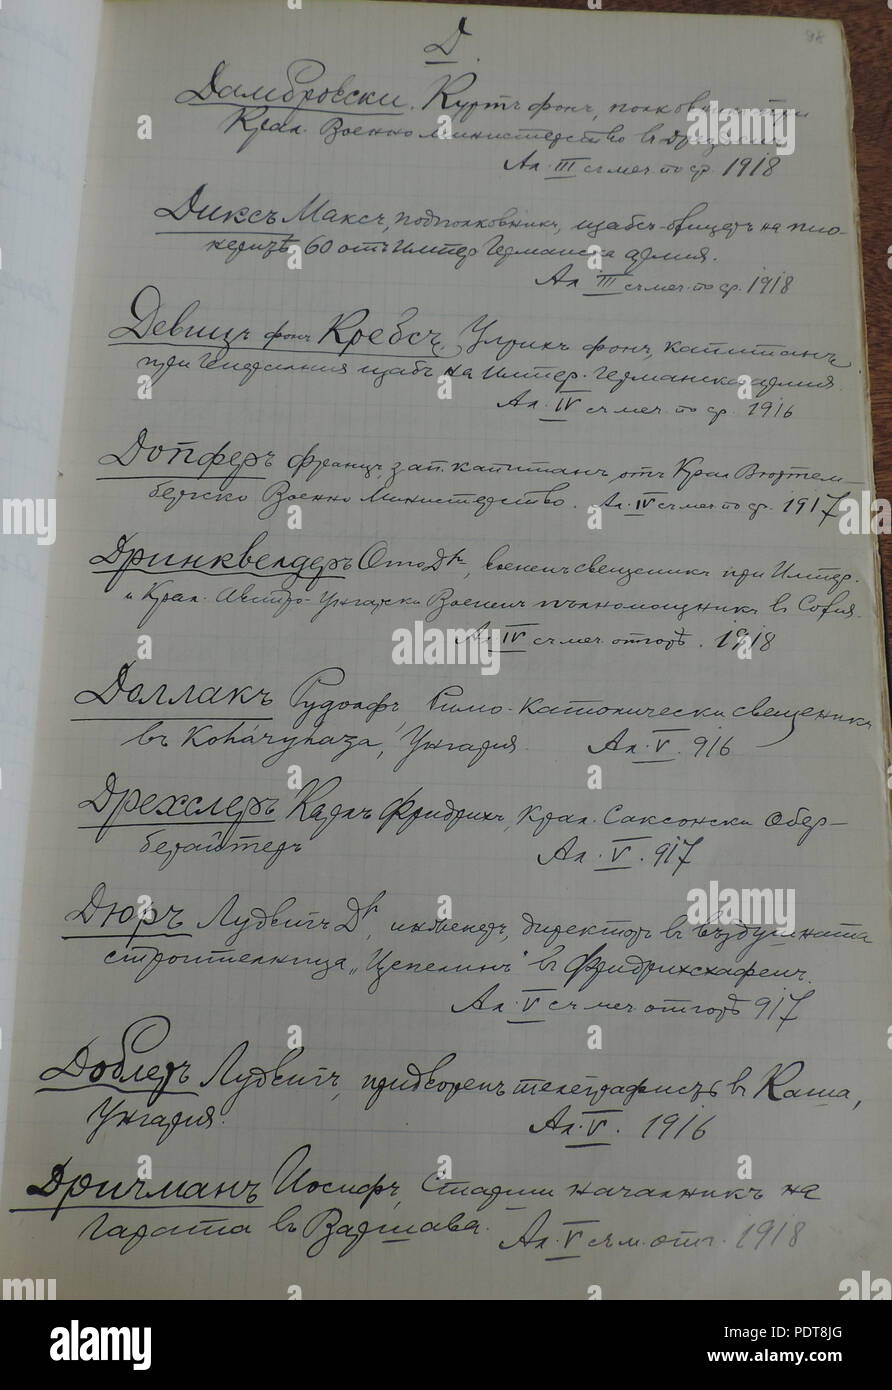 98
Д.
Дамбровски, Куртъ фонъ, полковникъ при
Крал. Военно министерство въ Дрезденъ
Ал. III съ меч. по ср. 1918
Диксъ Максъ, подполковникъ, щабсъ-офицеръ на пио-
неритѣ 60 отъ Импер Германска армия.
Ал III съ меч. по ср. 1918
Девицъ фонъ Кребсъ, Улрихъ фонъ, капитанъ
при Генералния щабъ на Импер. Германска армия.
Ал. IV съ меч. по ср. 1916
Допферъ Францъ зап. капитанъ отъ Крал Вюртем-
бергско Военно Министерство. Ал. IV съ меч по ср. 1917
Дринквелдеръ Ото Dr, военен свещеникъ при Импер.
и Крал. Австро-Унгарски Военен пълномощникъ въ София.
Ал IV съ меч отгорѣ. 1918
Доллакъ Рудолфъ Римо-Католически свещеникъ
въ, Унгария. Ал. V. 916
Дрехслеръ Карлъ Фридрихъ, Крал. Саксонски Обер-
берайтеръ Ал. V. 917
Дюръ Лудвигъ Dr, инженеръ, директоръ въ въздушната
строителница „Цепелинъ" въ Фридрихсхафенъ.
Ал. V съ меч. отгорѣ 917
Доблеръ Лудвигъ, придворенъ телеграфистъ въ Каша,
Унгария. Ал. V. 1916
Дричманъ Иосифъ, Старши началникъ на
гарата въ Варшава. Ал. V съ м. отг. 1918
alamy
alamy
Image ID: PDT8JG
www.alamy.com